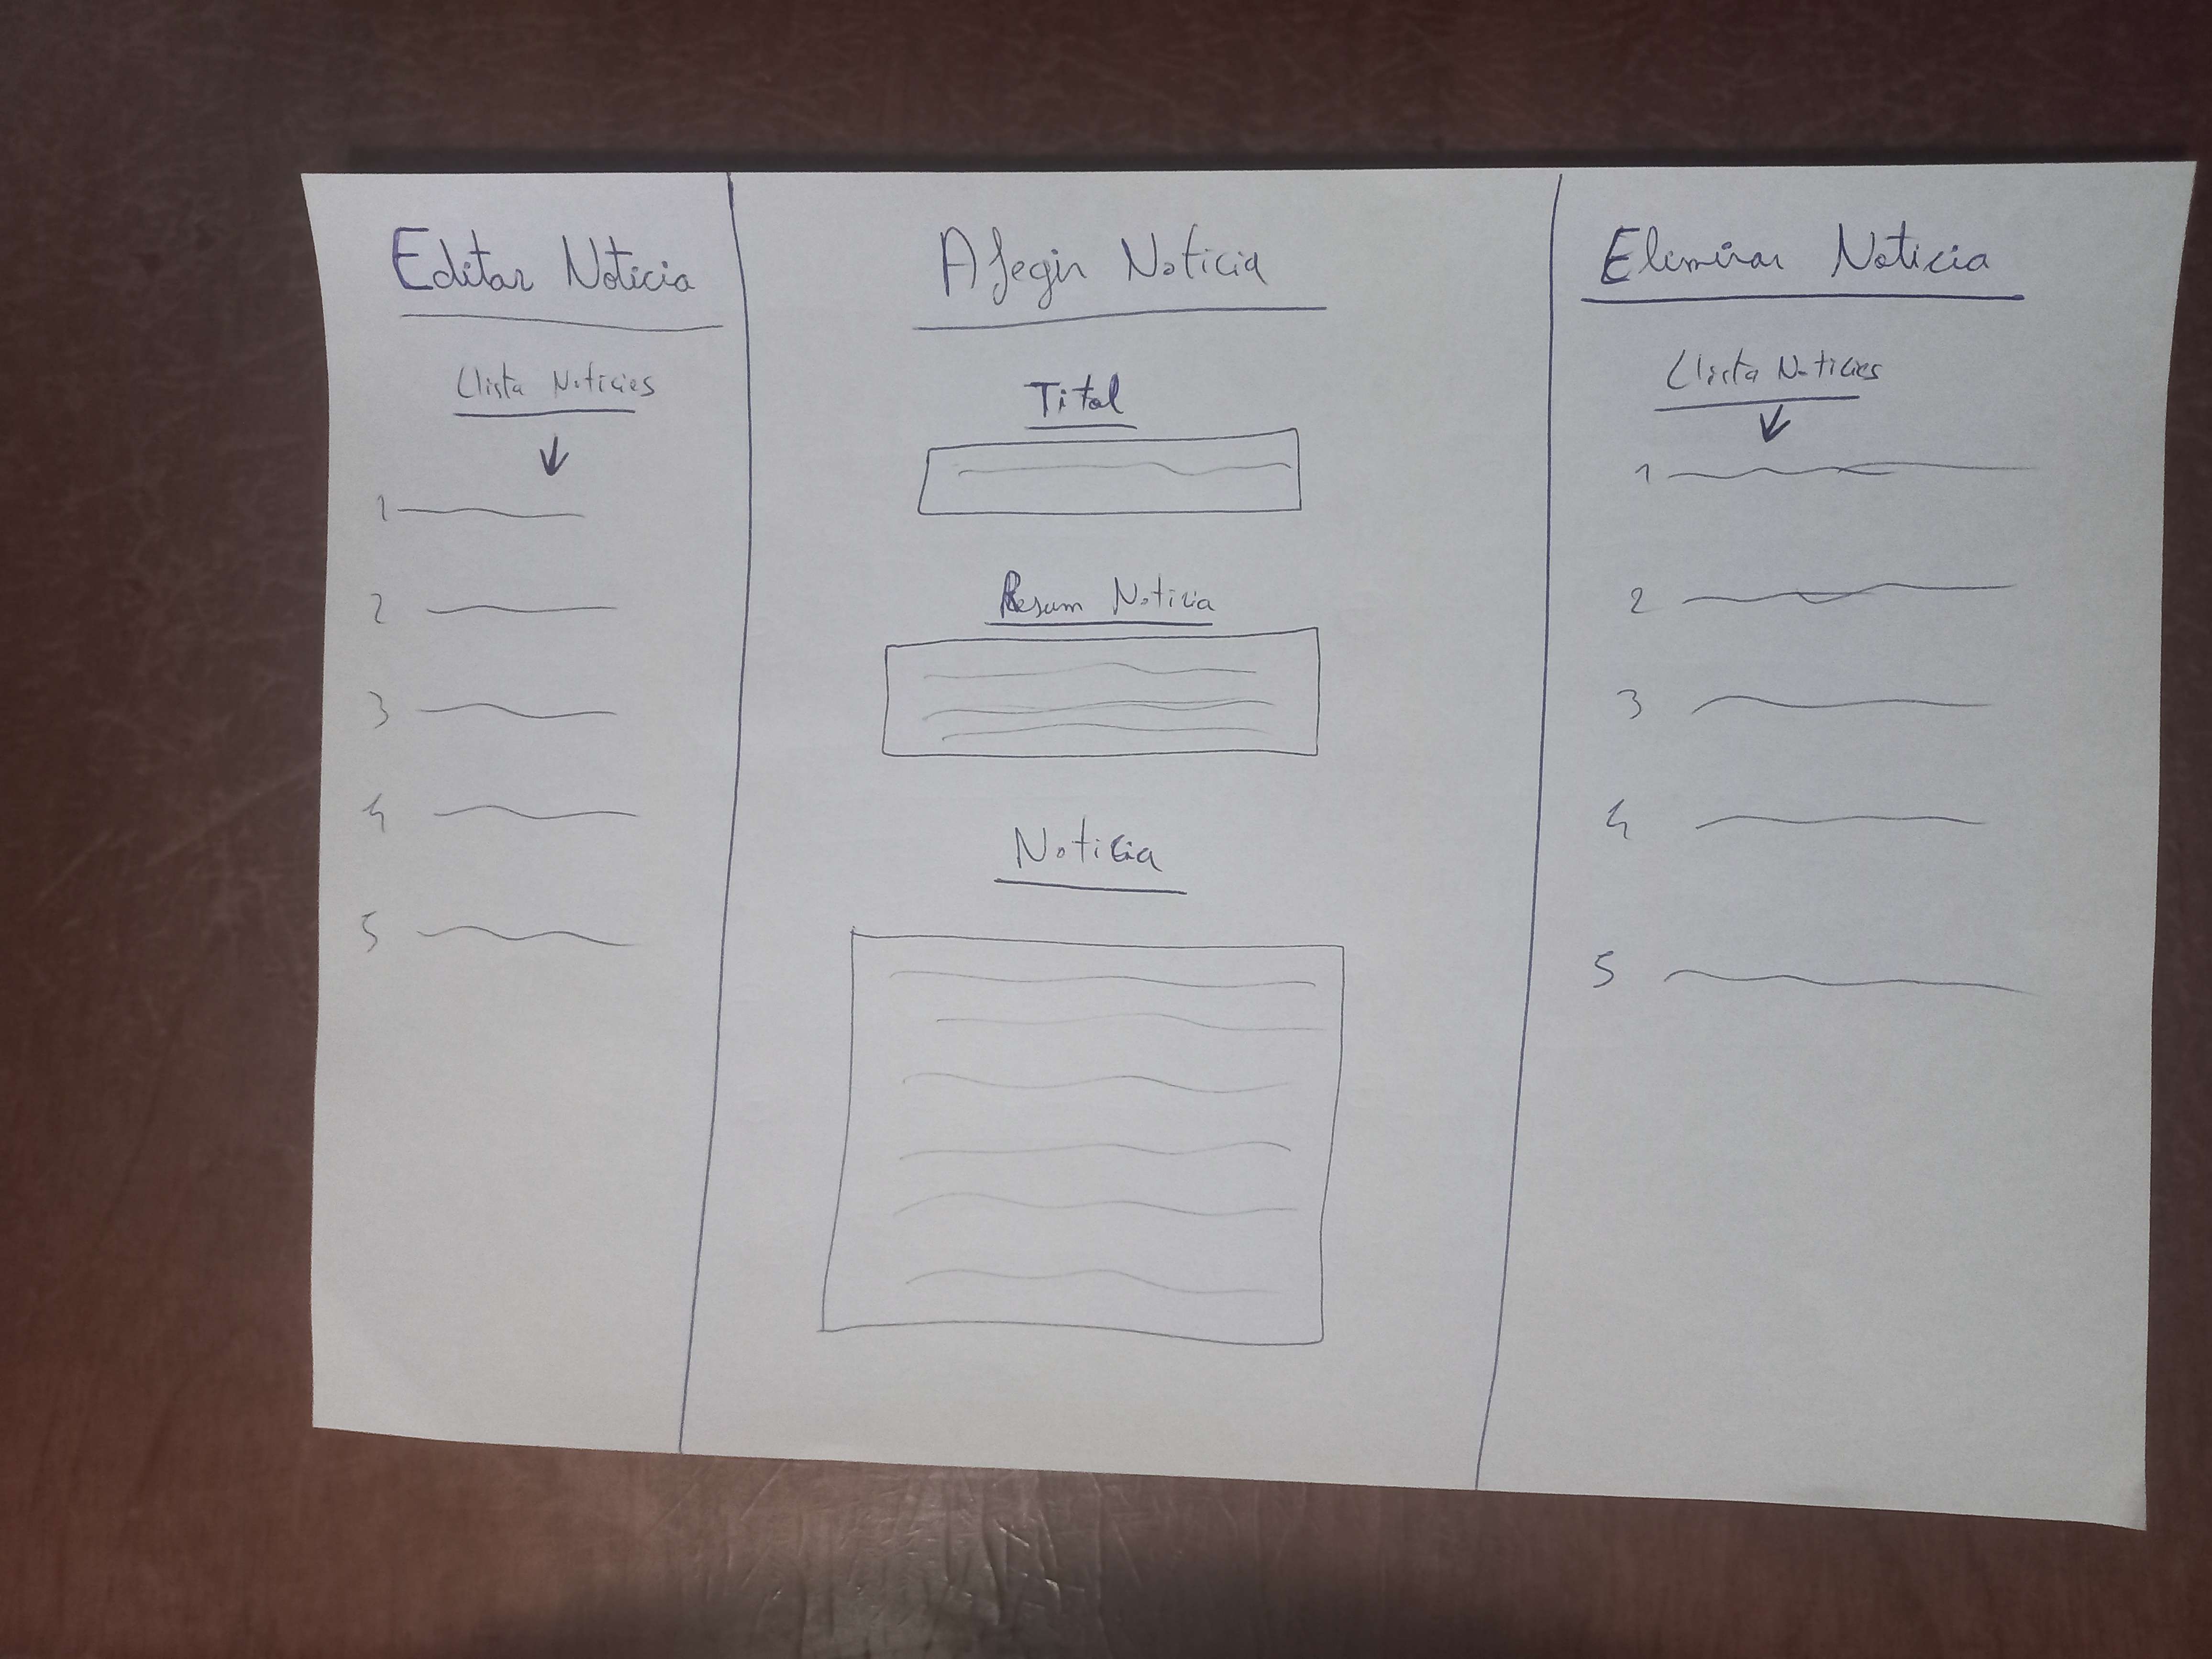 Editar Noticia
Llista Noticies
1
2
3
4
5
Afegir Noticia
Titol
Resum Noticia
Noticia
Eliminar Noticia
Llista Noticies
1
2
3
4
5